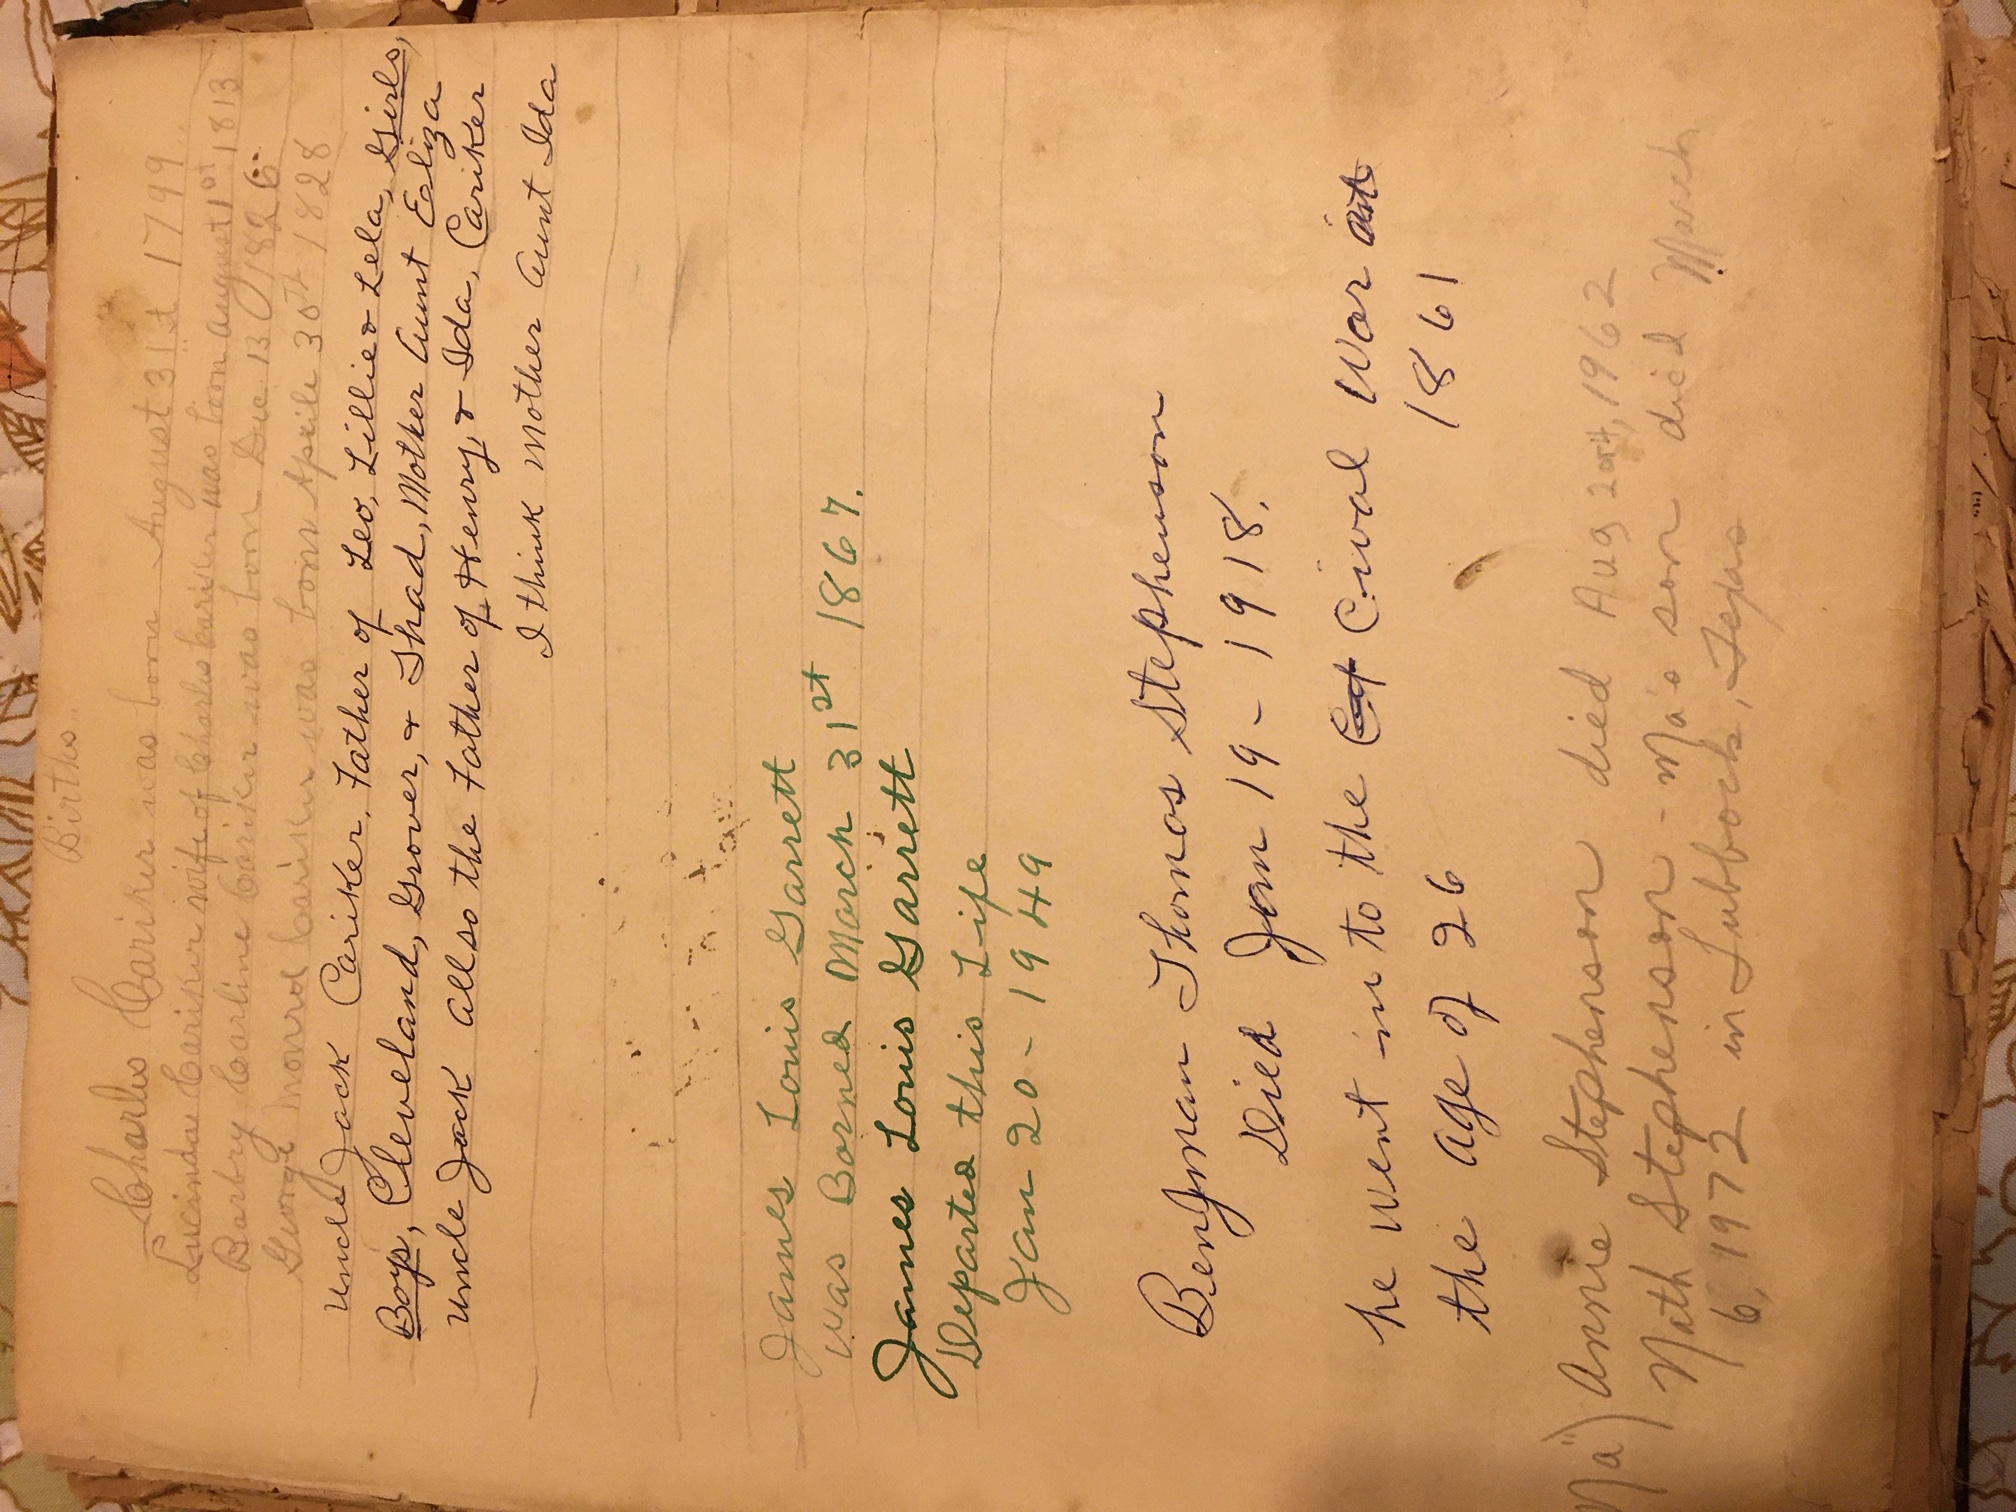 Births
Charles Cariker was born August 31st 1799
Lucinda Cariker wife of Charles Cariker was born August 1st 1813
Barbry Carline Cariker was born Dec 13 1826
George Monrod Cariker was born Aprile 30th 1828
Uncle Jack Cariker, Father of Leo, Lillie & Lela, Girls,
Boys, Cleveland, Grover, & Thad, Mother Aunt Ealiza
Uncle Jack also the Father of Henry, & Ida, Cariker
I think Mother Aunt Ida
James Louis Garrett
Was Borned March 31st 1867.
James Louis Garrett
Departed this Life
Jan 20 - 1949
Benjman Thomas Stephenson
Died Jan 19 - 1918.
he went in to the Cival War at
the age of 26 1861
"Ma") Annie Stephenson died Aug 20th, 1962
Nath Stephenson - Ma's son died March
6, 1972 in Lubbock, Texas